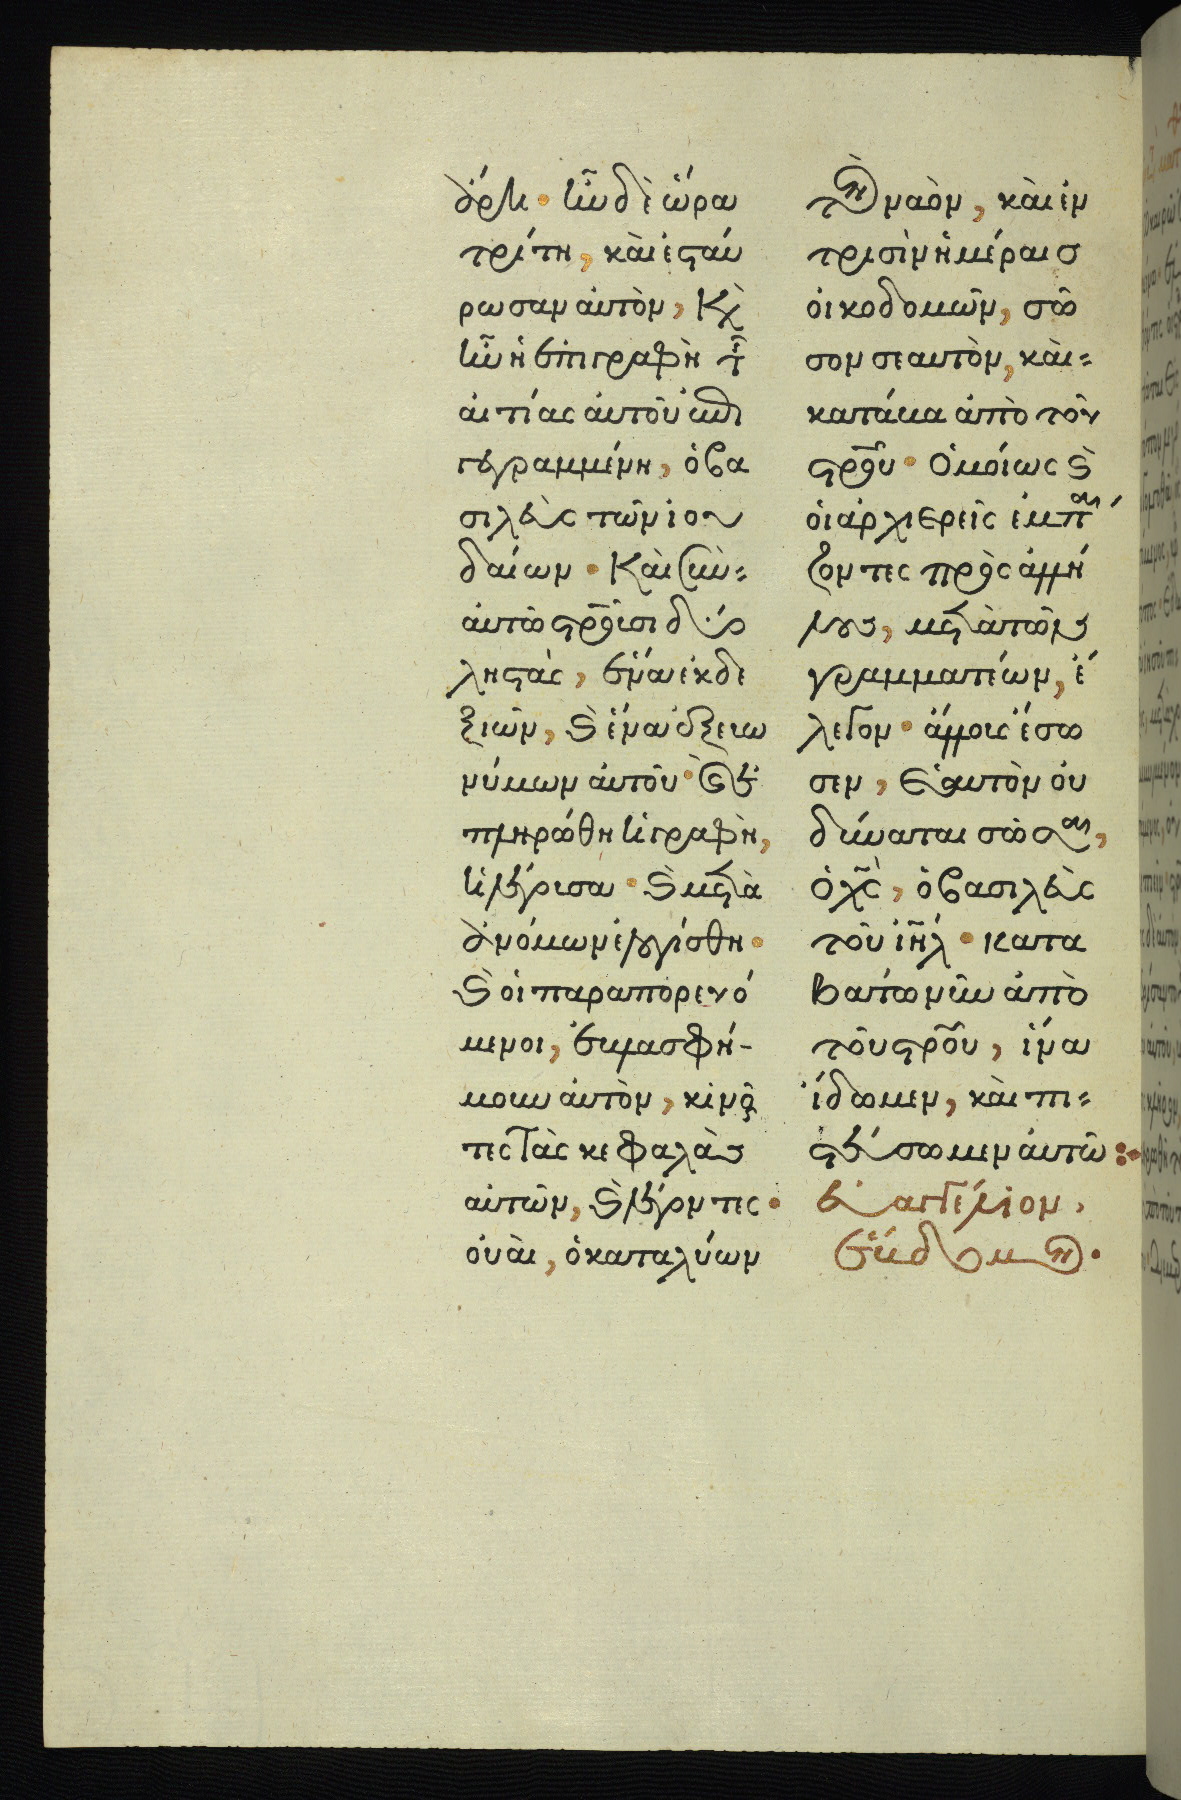 ἄρῃ· ἦν δὲ ὥρα
τρίτη, καὶ ἐσταύ
ρωσαν αὐτὸν, Καὶ
ἦν ἡ ἐπιγραφὴ τῆς
αἰτίας αὐτοῦ ἐπι
γεγραμμένη, ὁ βα
σιλεὺς τῶν ἰου
δαίων· Καὶ σὺν=
αὐτῷ στροῦσι δύο
ληστάς, ἕνα ἐκ δε
ξιῶν, καὶ ἕνα ἐξ εὐω
νύμων αὐτοῦ· καὶ ἐ
πληρώθη ἡ γραφὴ,
ἡ λέγουσα· καὶ μετὰ
ἀνόμων ἐλογίσθη·
καὶ οἱ παραπορευό
μενοι, ἐβλασφή-
μουν αὐτὸν, κινοῦν
τες τὰς κεφαλὰς
αὐτῶν, καὶ λέγοντες·
οὐὰι, ὁ καταλύων
τὸν ναὸν, καὶ ἐν
τρισὶν ἡμέραις
οἰκοδομῶν, σῶ
σον σεαυτὸν, καὶ=
κατάβα ἀπὸ τοῦ
στροῦ· Ὁμοίως καὶ
οἱ ἀρχιερεῖς ἐμπαί
ζοντες πρὸς ἀλλή
λους, μετὰ τῶν
γραμματέων, ἔ
λεγον· ἄλλους ἔσω
σεν, ἑαυτὸν οὐ
δύναται σῶσαι,
ὁ χς, ὁ βασιλεὺς
τοῦ ιηλ· κατα
βάτω νῦν ἀπὸ
τοῦ στροῦ, ἵνα
ἴδωμεν, καὶ πι=
στεύσωμεν αὐτῷ:
εὐαγγέλιον,
ἕβδομον.